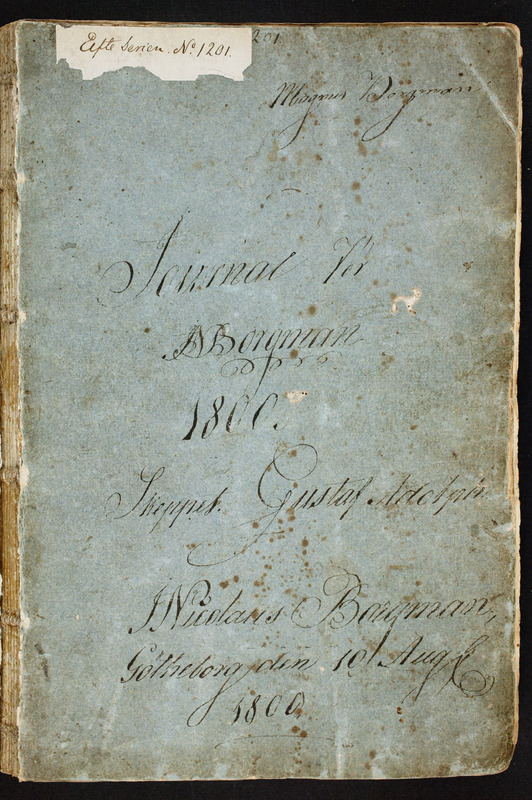 Eefte Serien. No 1201.
201.
Magnus Borgman
Journal för
Borgman
1800.
Skeppet. Gustaf Adolph.
Nicolaus Borgman,
Götheborg den 10 Aug
1800